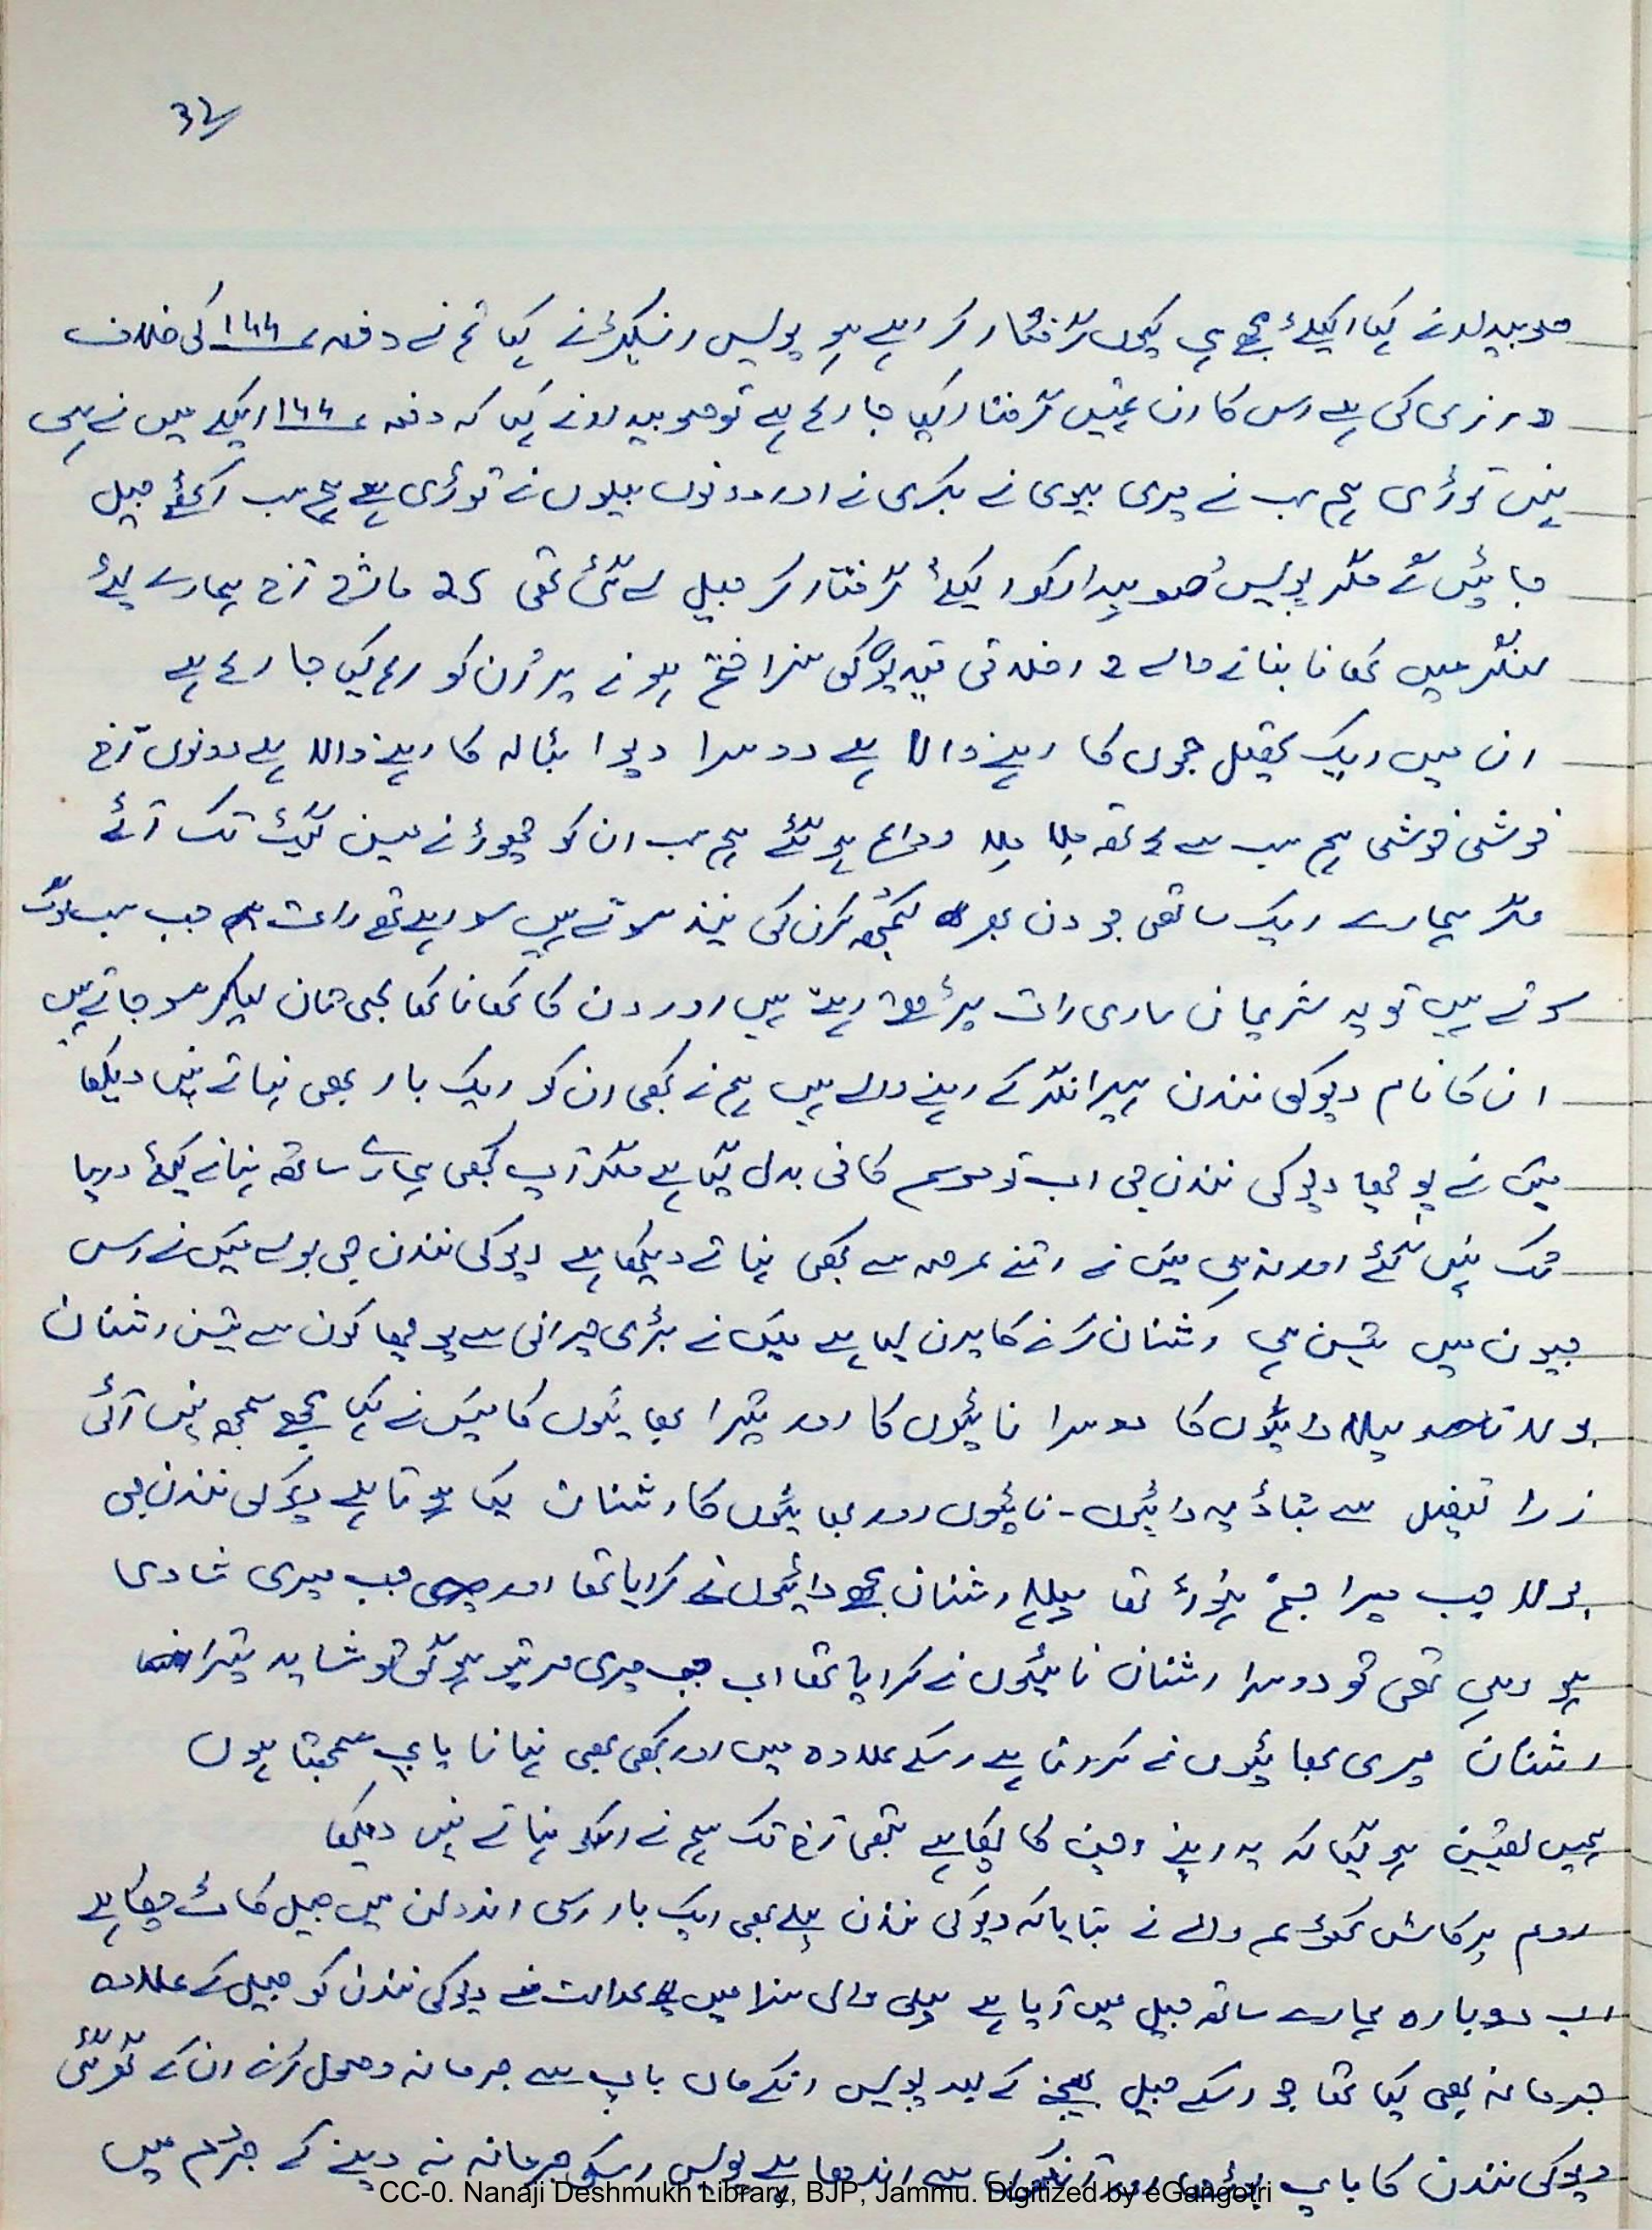 32
صوبیدار نے کہا اکیلے مجھے ہی کیوں گرفتار کر رہے ہو پولیس انسپکٹر نے کہا تم نے دفعہ ۱۴۴ کی خلاف
ورزی کی ہے اس کارن تمہیں گرفتار کیا جا رہا ہے تو صوبیدار نے کہا کہ دفعہ ۱۴۴ اکیلے میں نے ہی
نہیں توڑی ہم سب نے میری بیوی نے بکری نے اور دونوں بیلوں نے توڑی ہے ہم سب اکٹھے جیل
جائیں گے مگر پولیس صوبیدار کو اکیلے گرفتار کر جیل لے گئی تھی 25 مارچ آج ہمارے لئے
لنگر میں کھانا بنانے والے 2 اخلاقی قیدیوں کی سزا ختم ہونے پر اُن کو رہا کیا جا رہا ہے
ان میں ایک جموں کا رہنے والا ہے دوسرا دیوا بٹالہ کا رہنے والا ہے دونوں آج
خوشی خوشی ہم سب سے ہاتھ ملا ملا وداع ہو گئے ہم سب ان کو چھوڑنے مین گیٹ تک آئے
مگر ہمارے ایک ساتھی جو دن بھر کمبھ کرن کی نیند سوتے ہیں سو رہے تھے رات جب سب لوگ
سوتے ہیں تو یہ شریمان ساری رات پڑھتے رہتے ہیں اور دن کا کھانا کھا لمبی تان لیکر سو جاتے ہیں
ان کا نام دیوکی نندن ہیرانگر کے رہنے والے ہیں ہم نے کبھی ان کو ایک بار بھی نہاتے نہیں دیکھا
میں نے پوچھا دیوکی نندن جی اب تو موسم کافی بدل گیا ہے مگر آپ کبھی ہمارے ساتھ نہانے کیلئے دریا
تک نہیں گئے اور نہ ہی میں نے اتنے عرصہ سے کبھی نہاتے دیکھا ہے دیوکی نندن جی بولے میں نے اس
جیون میں تین ہی اشنان کرنے کا پرن لیا ہے میں نے بڑی حیرانی سے پوچھا کون سے تین اشنان
بولا پہلا دائیوں کا دوسرا نائیوں کا اور تیسرا بھائیوں کا میں نے کہا مجھے سمجھ نہیں آئی
زرا تفصیل سے بتاؤ یہ دائیوں - نائیوں اور بھائیوں کا اشنان کیا ہوتا ہے دیوکی نندن جی
بولا جب میرا جنم ہوا تھا پہلا اشنان مجھے دائیوں نے کرایا تھا اور جب میری شادی
ہو رہی تھی تو دوسرا اشنان نائیوں نے کرایا تھا اب جب میری مرتیو ہو گی تو شاید تیسرا
اشنان میری بھائیوں نے کروانا ہے اسکے علاوہ میں اور کبھی بھی نہانا پاپ سمجھتا ہوں
ہمیں یقین ہو گیا کہ یہ اپنے وچن کا پکا ہے تبھی آج تک ہم نے اسکو نہاتے نہیں دیکھا
اوم پرکاش والے نے بتایا کہ دیوکی نندن پہلے بھی ایک بار اسی اندولن میں جیل کاٹ چکا ہے
اب دوبارہ ہمارے ساتھ جیل میں آیا ہے پہلی والی سزا میں عدالت نے دیوکی نندن کو جیل کے علاوہ
جرمانہ بھی کیا تھا جو اسکے جیل بھیجنے کے بعد پولیس انکے ماں باپ سے جرمانہ وصول کرنے ان کے گھر گئی
دیوکی نندن کا باپ بوڑھا اور آنکھوں سے اندھا ہے پولیس اسکو جرمانہ نہ دینے کے جرم میں
CC-0. Nanaji Deshmukh Library, BJP, Jammu. Digitized by eGangotri